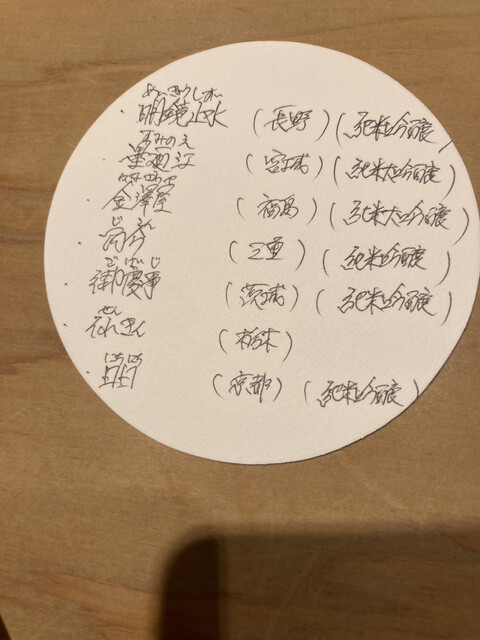 めいきょうしすい
・明鏡止水 (長野) (純米吟醸)
すみのえ
・墨廼江 (宮城) (純米大吟醸)
かなざわや
・金澤屋 (福島) (純米大吟醸)
じ こん
・而今 (三重) (純米吟醸)
ごけいじ
・御慶事 (茨城) (純米吟醸)
せん
・(栃木)
にちにち
・日日 (京都) (純米吟醸)